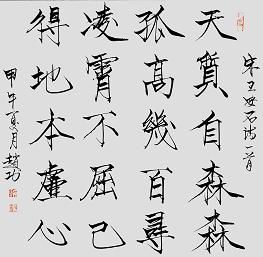 宋王安石诗一首
天質自森森
孤高幾百尋
凌霄不屈己
得地本虛心
甲午夏月趙功